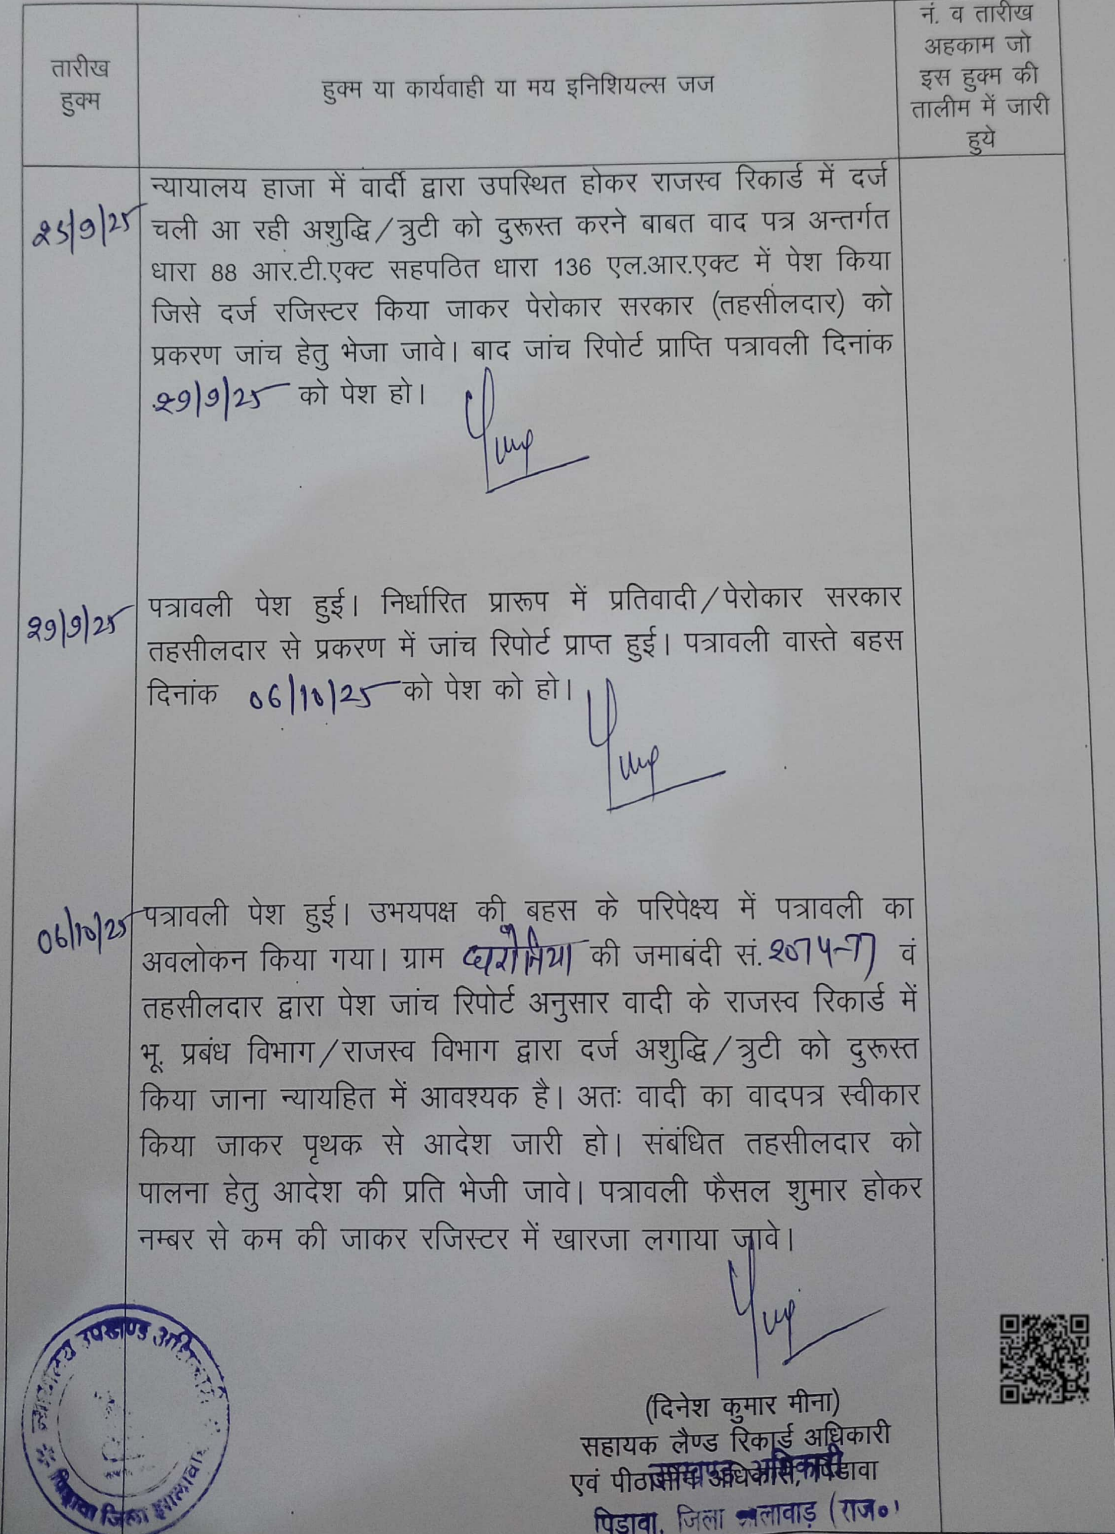 तारीख
हुक्म
हुक्म या कार्यवाही या मय इनिशियल्स जज
नं. व तारीख
अहकाम जो
इस हुक्म की
तालीम में जारी
हुये
25/9/25
न्यायालय हाजा में वार्दी द्वारा उपस्थित होकर राजस्व रिकार्ड में दर्ज
चली आ रही अशुद्धि/त्रुटी को दुरूस्त करने बाबत वाद पत्र अन्तर्गत
धारा 88 आर.टी.एक्ट सहपठित धारा 136 एल.आर.एक्ट में पेश किया
जिसे दर्ज रजिस्टर किया जाकर पेरोकार सरकार (तहसीलदार) को
प्रकरण जांच हेतु भेजा जावे। बाद जांच रिपोर्ट प्राप्ति पत्रावली दिनांक
29/9/25 को पेश हो।
29/9/25
पत्रावली पेश हुई। निर्धारित प्रारूप में प्रतिवादी/पेरोकार सरकार
तहसीलदार से प्रकरण में जांच रिपोर्ट प्राप्त हुई। पत्रावली वास्ते बहस
दिनांक 06/10/25 को पेश को हो।
06/10/25
पत्रावली पेश हुई। उभयपक्ष की बहस के परिपेक्ष्य में पत्रावली का
अवलोकन किया गया। ग्राम की जमाबंदी सं. 2074-77 वं
तहसीलदार द्वारा पेश जांच रिपोर्ट अनुसार वादी के राजस्व रिकार्ड में
भू. प्रबंध विभाग/राजस्व विभाग द्वारा दर्ज अशुद्धि/त्रुटी को दुरूस्त
किया जाना न्यायहित में आवश्यक है। अतः वादी का वादपत्र स्वीकार
किया जाकर पृथक से आदेश जारी हो। संबंधित तहसीलदार को
पालना हेतु आदेश की प्रति भेजी जावे। पत्रावली फैसल शुमार होकर
नम्बर से कम की जाकर रजिस्टर में खारजा लगाया जावे।
(दिनेश कुमार मीना)
सहायक लैण्ड रिकार्ड अधिकारी
एवं पीठासीन अधिकारी, पिडावा
उपखण्ड अधिकारी
पिडावा, जिला झालावाड़ (राज०)
न्यायालय उपखण्ड अधिकारी
पिडावा जिला झालावाड़